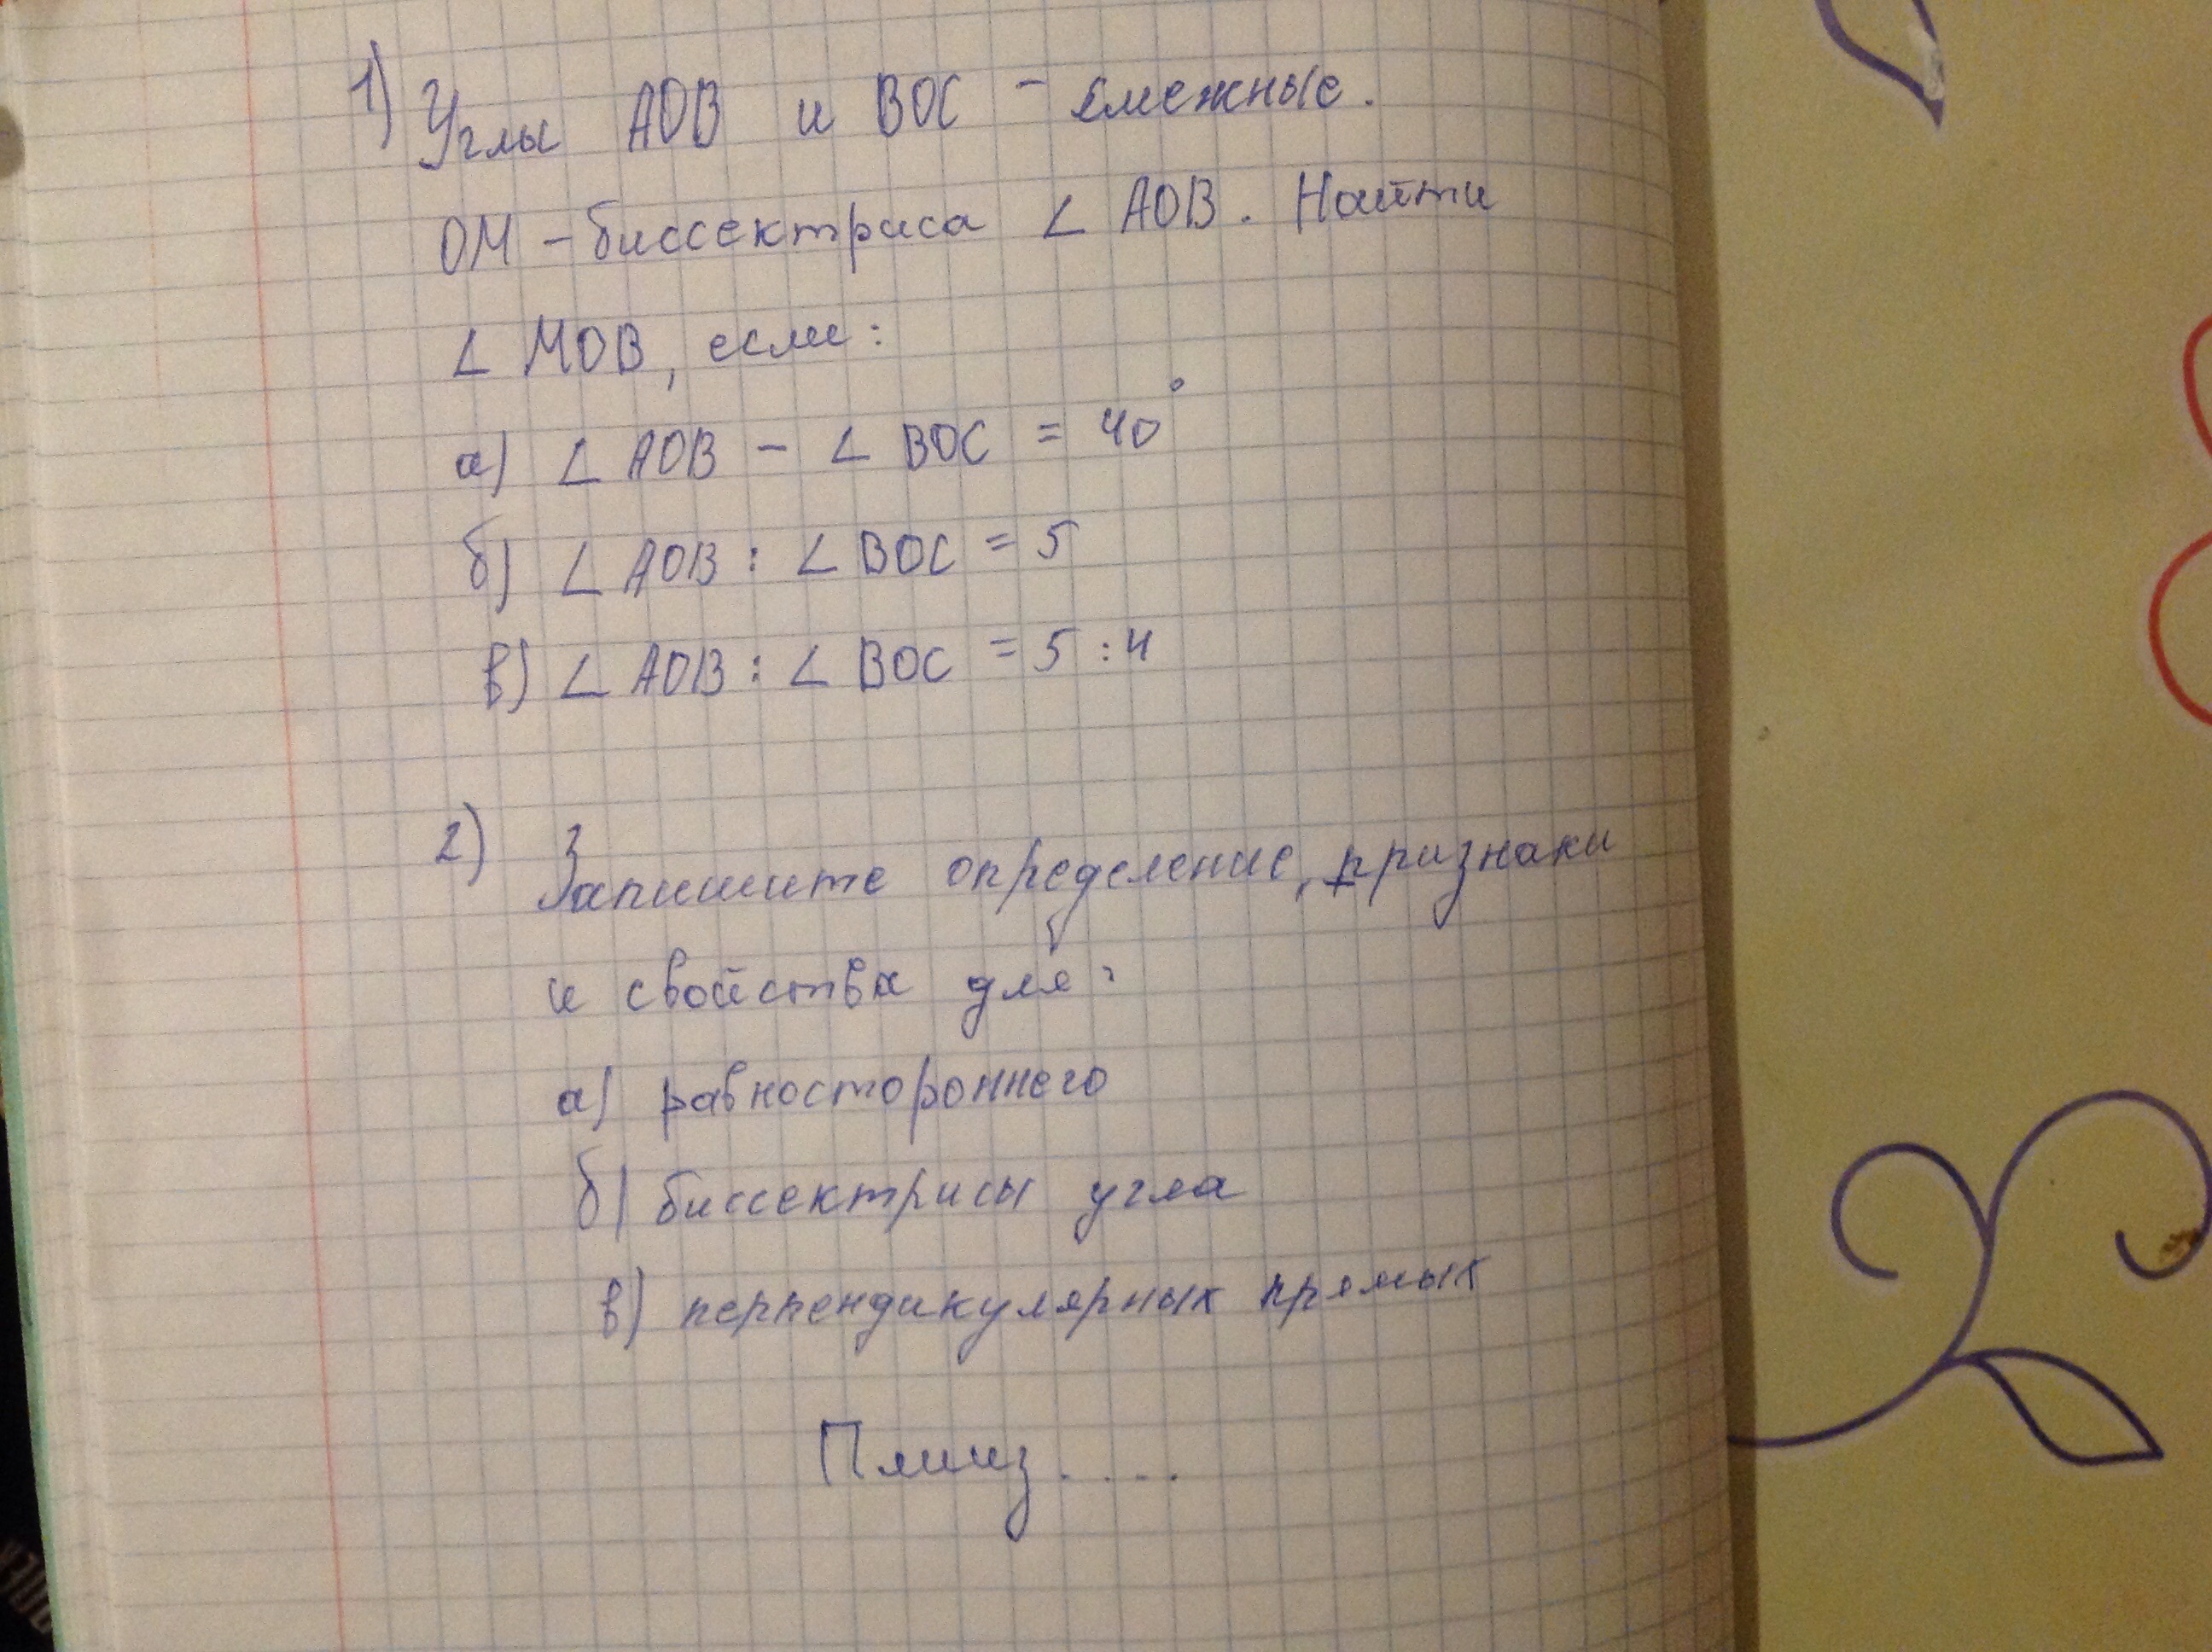 1) Углы АОВ и ВОС - смежные.
ОМ - биссектриса ∠ АОВ. Найти
∠ МОВ, если:
а) ∠ АОВ - ∠ ВОС = 40°
б) ∠ АОВ : ∠ ВОС = 5
в) ∠ АОВ : ∠ ВОС = 5 : 4
2) Запишите определение, признаки
и свойства для:
а) равностороннего
б) биссектрисы угла
в) перпендикулярных прямых
Плииз....